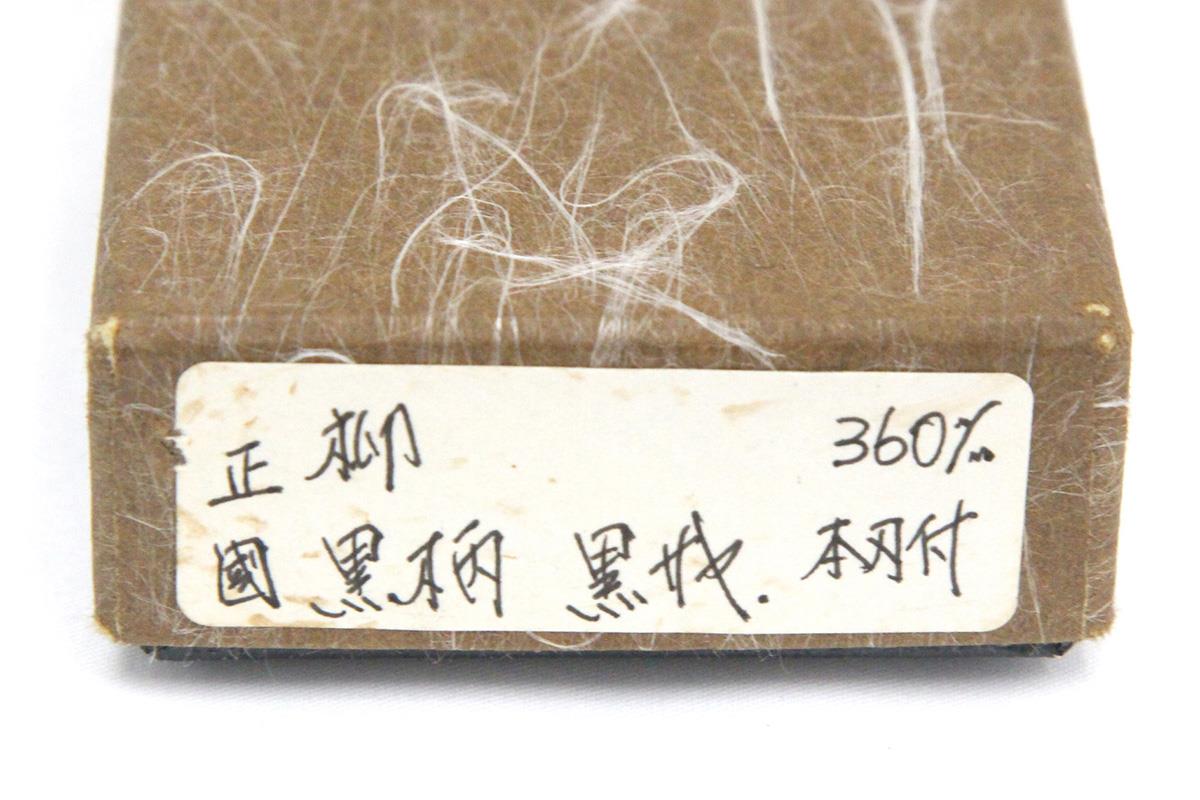 正 柳 360m/m
國 黒柄 黒 本刃付